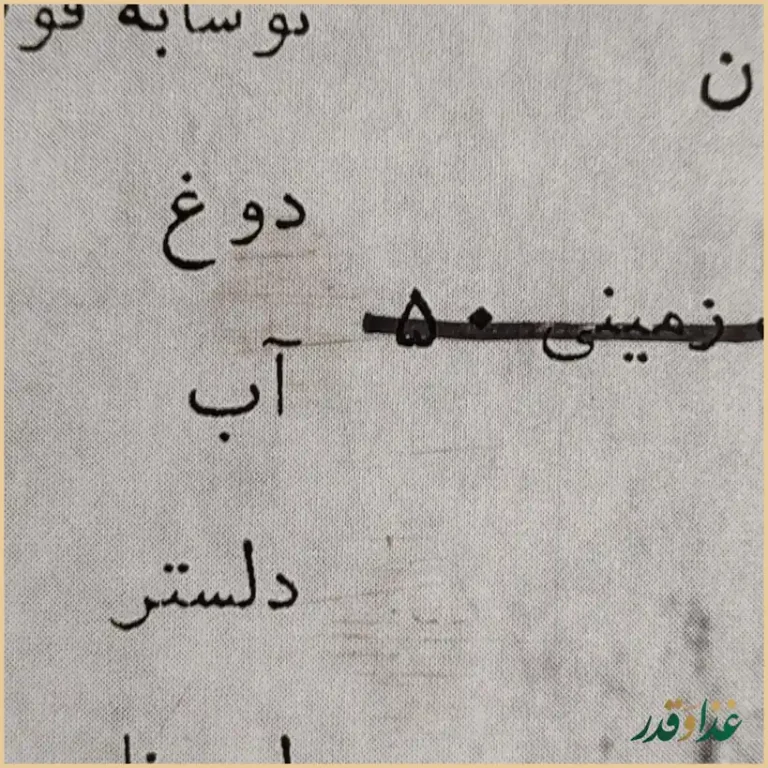 نوشابه
ن
دوغ
زمینی ۵۰
آب
دلستر
غذا و قدر